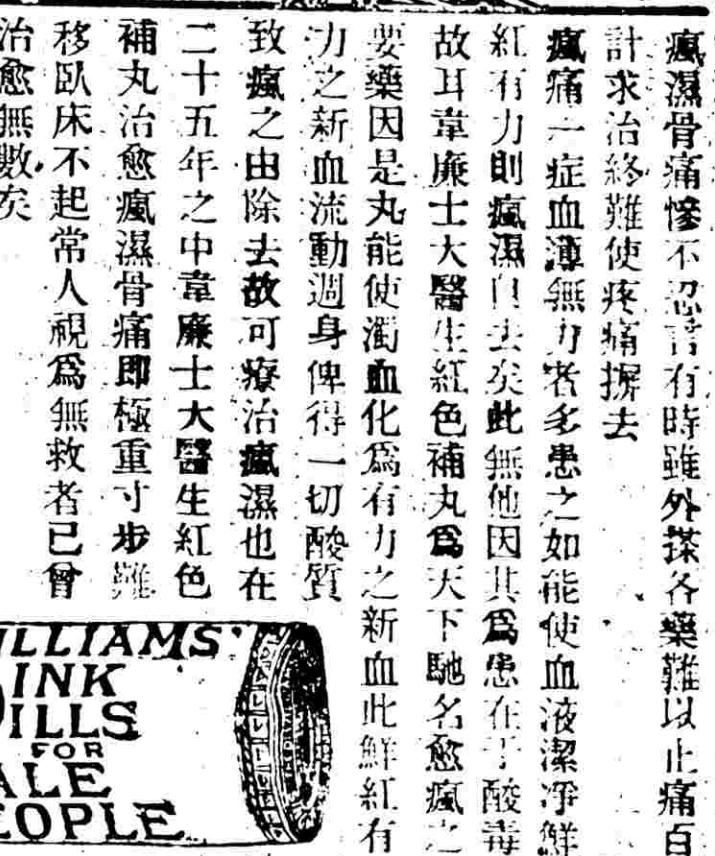 瘋濕骨痛慘不忍言有時雖外搽各藥難以止痛百
計求治終難使疼痛摒去
瘋痛一症血薄無力者多患之如能使血液潔凈鮮
紅有力則瘋濕自去矣此無他因其爲患在于酸毒
故耳韋廉士大醫生紅色補丸爲天下馳名愈瘋之
要藥因是丸能使濁血化爲有力之新血此鮮紅有
力之新血流動週身俾得一切酸質
致瘋之由除去故可療治瘋濕也在
二十五年之中韋廉士大醫生紅色
補丸治愈瘋濕骨痛即極重寸步難
移臥床不起常人視爲無救者已曾
治愈無數矣
ILLIAMS'
INK
ILLS
FOR
ALE
EOPLE